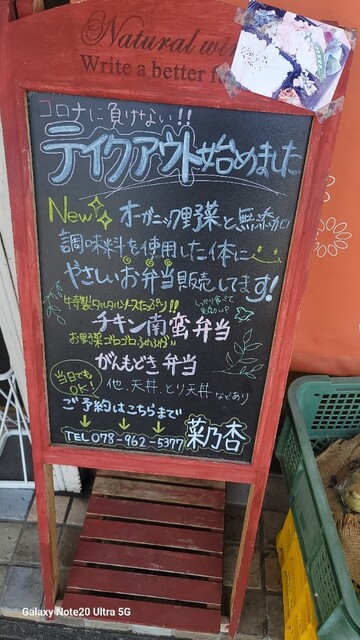 Natural wi
Write a better f
コロナに負けない!!
テイクアウト始めました
New オーガニック野菜と無添加
調味料を使用した体に
やさしいお弁当販売してます!
特製タルタルソースたっぷり!!
しっかり食べて
チキン南蛮弁当
お野菜ゴロゴロふわふわ
がんもどき弁当
当日でもOK!
他、天丼、とり天丼 などあり
ご予約はこちらまで
TEL 078-962-5377 菜乃杏
Galaxy Note20 Ultra 5G